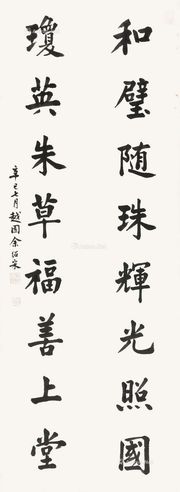 和璧随珠輝光照國
瓊英朱草福善上堂
辛巳七月越園余紹宋